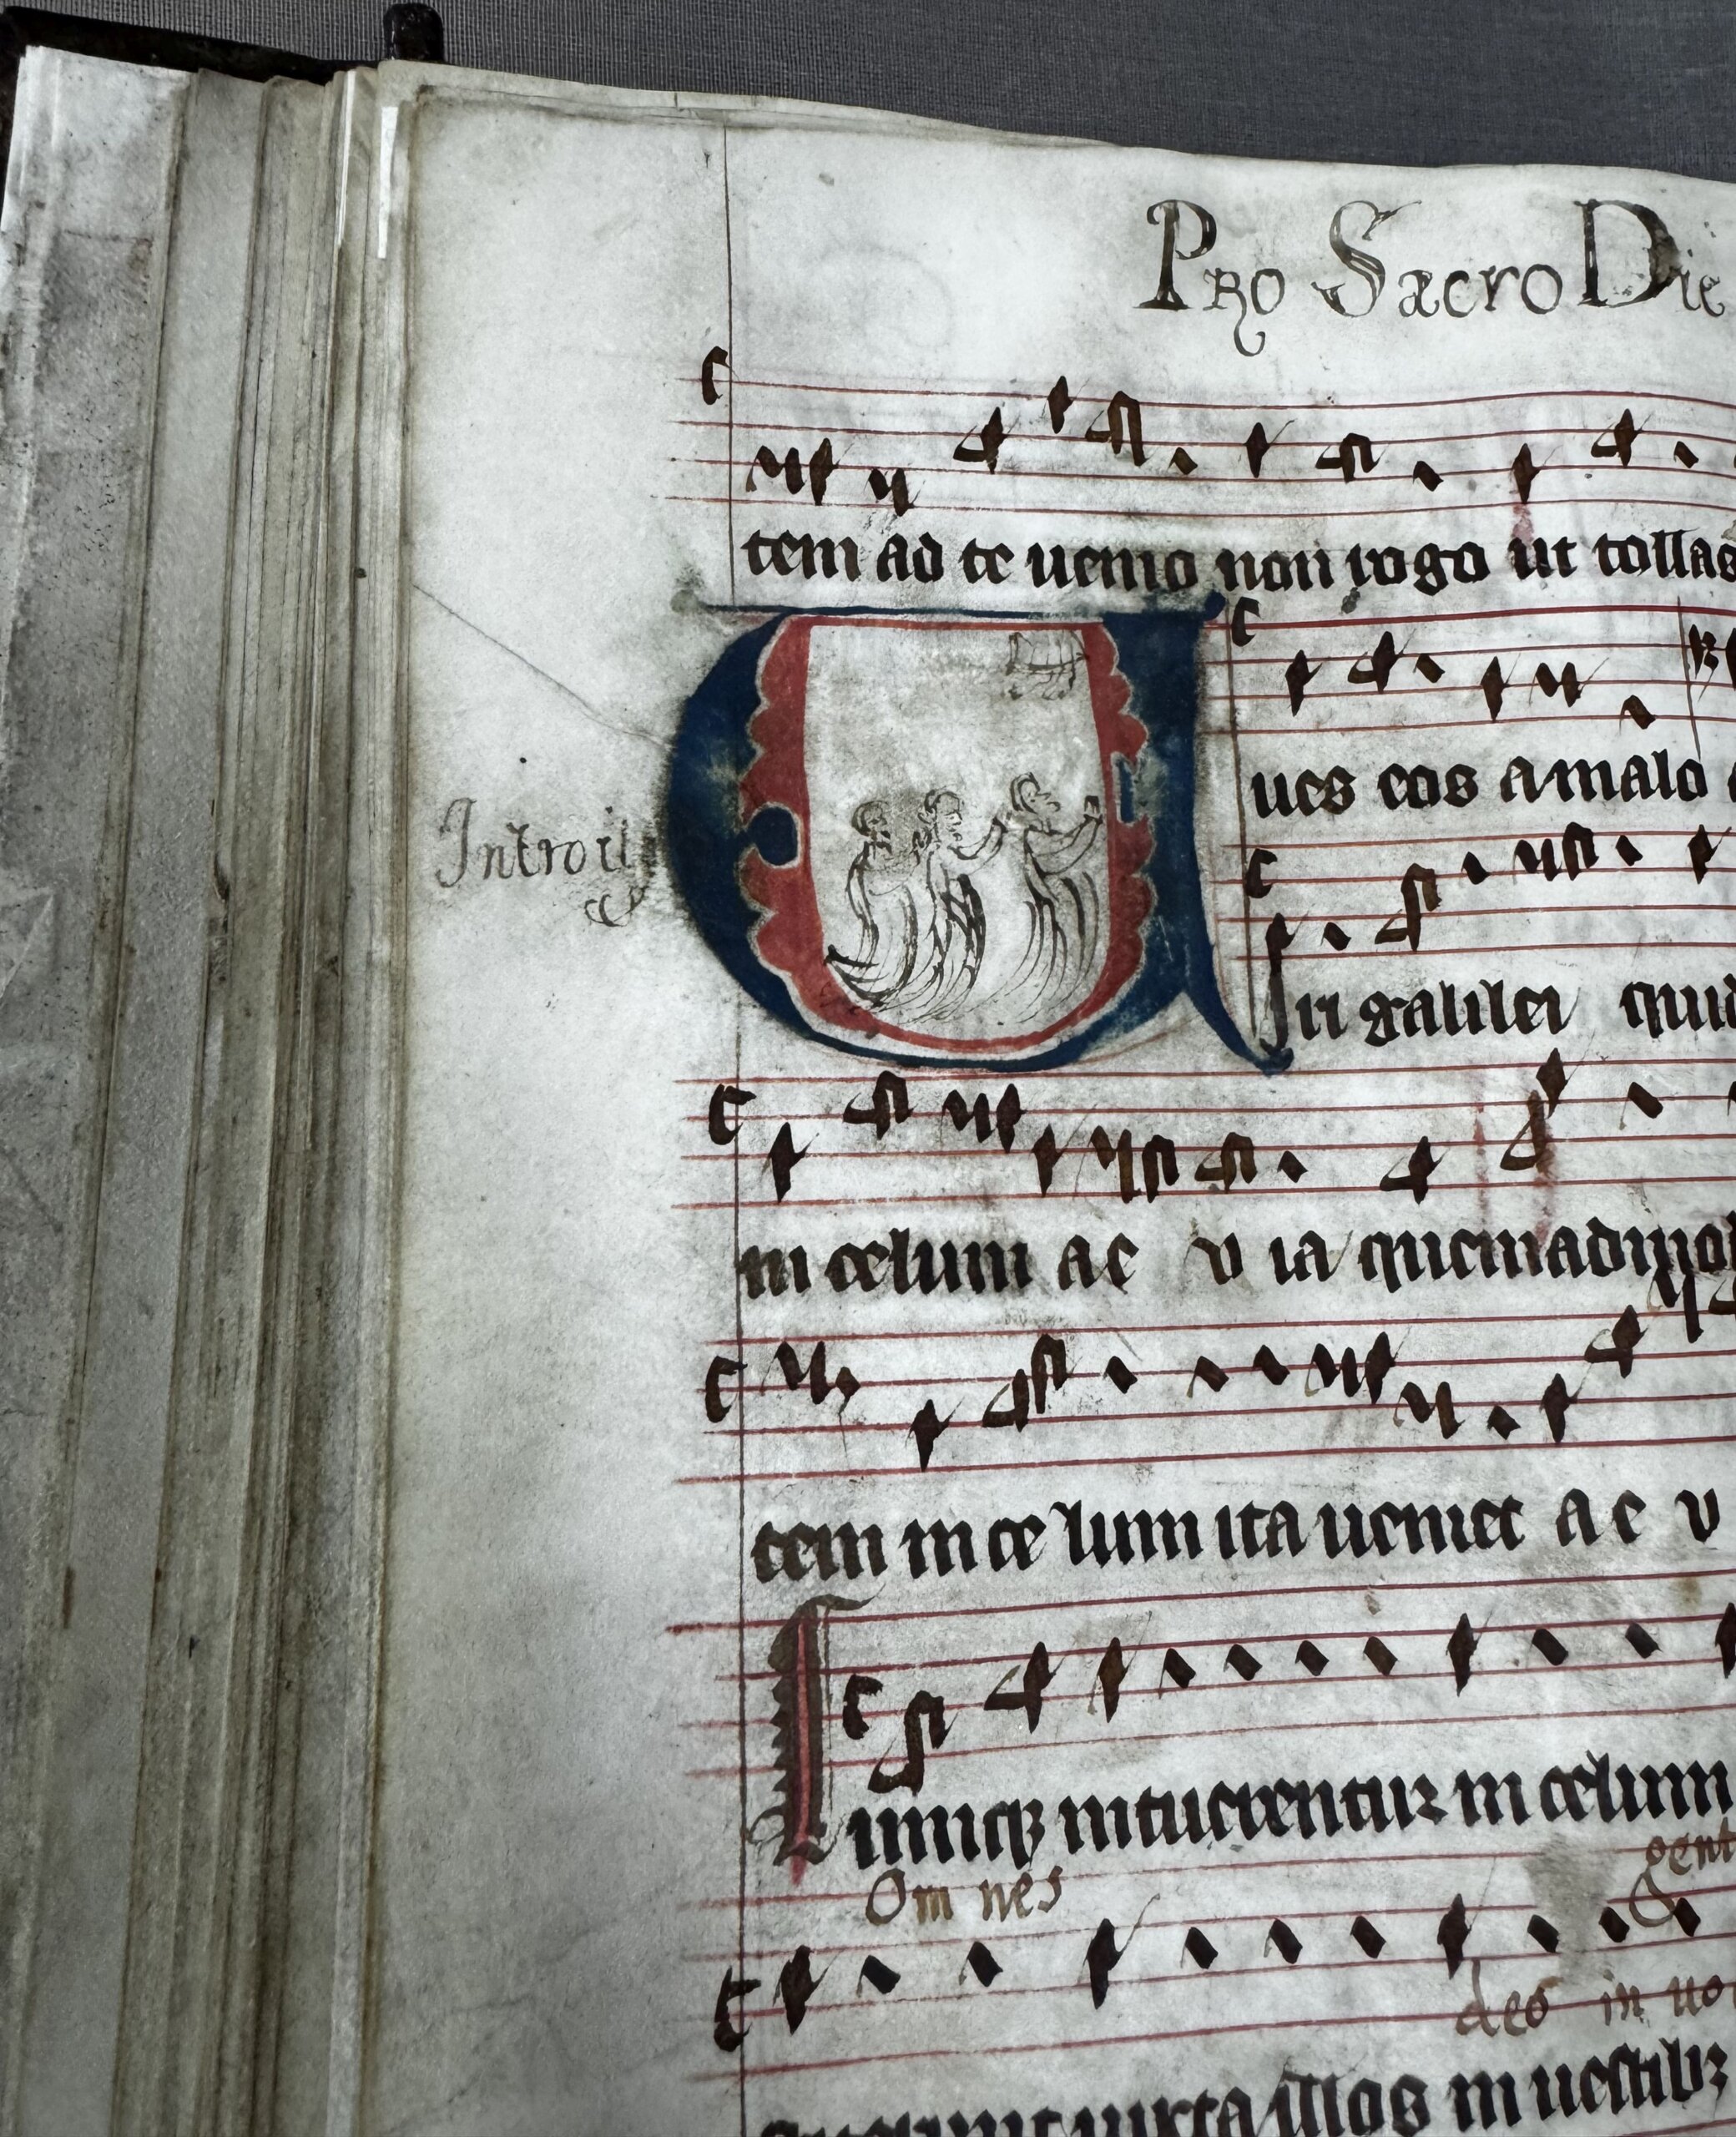 Pro Sacro Die
tem ad te uenio non rogo ut tollas
ues eos a malo
Introitg
Uiri galilei quid
in celum a e v ia quemadmo
tem in ce lum ita ueniet a e v
Cumqꝫ intuerentur in celum
Om nes gent
des in uo
iuxta illos in uestibꝫ